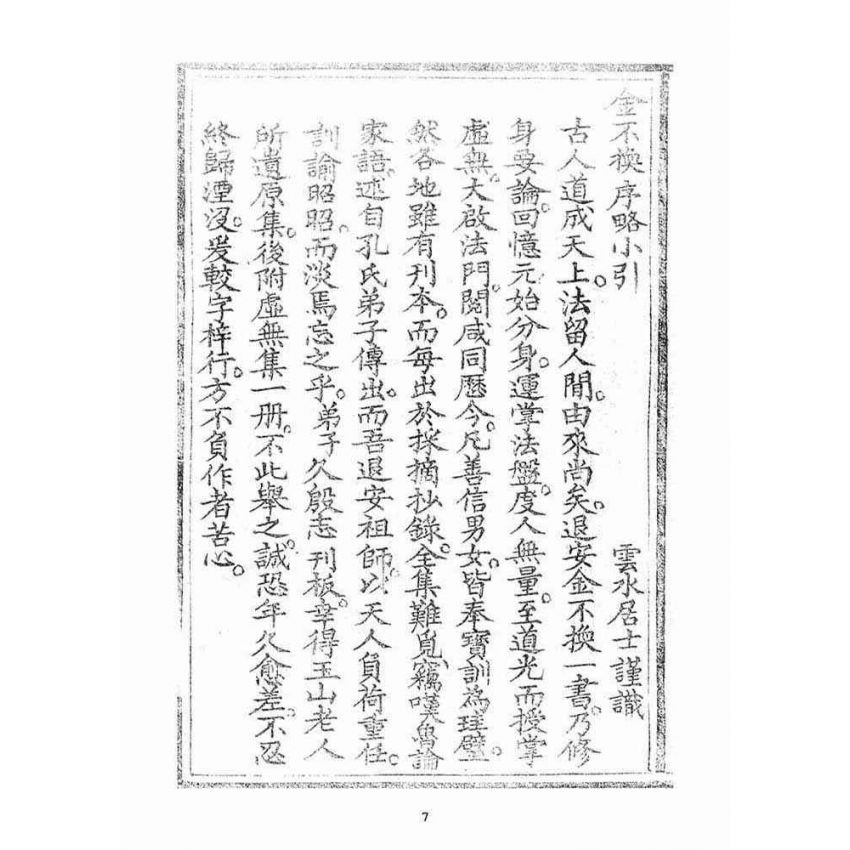 金不換序略小引
雲水居士謹識
古人道成天上。法留人間。由來尚矣。退安金不換一書。乃修
身要論。回憶元始分身。運掌法盤。度人無量。至道光而授掌
虛無。大啟法門。閱咸同歷今。凡善信男女。皆奉寶訓為珪璧。
然各地雖有刊本。而每出於採摘抄錄。全集難覓。竊嘆魯論
家語。述自孔氏弟子傳出。而吾退安祖師。以天人負荷重任。
訓諭昭昭。而淡焉忘之乎。弟子久殷志刊板。幸得玉山老人
所遺原集。後附虛無集一册。不此舉之。誠恐年久愈差。不忍
終歸湮沒。爰較字梓行。方不負作者苦心。
7